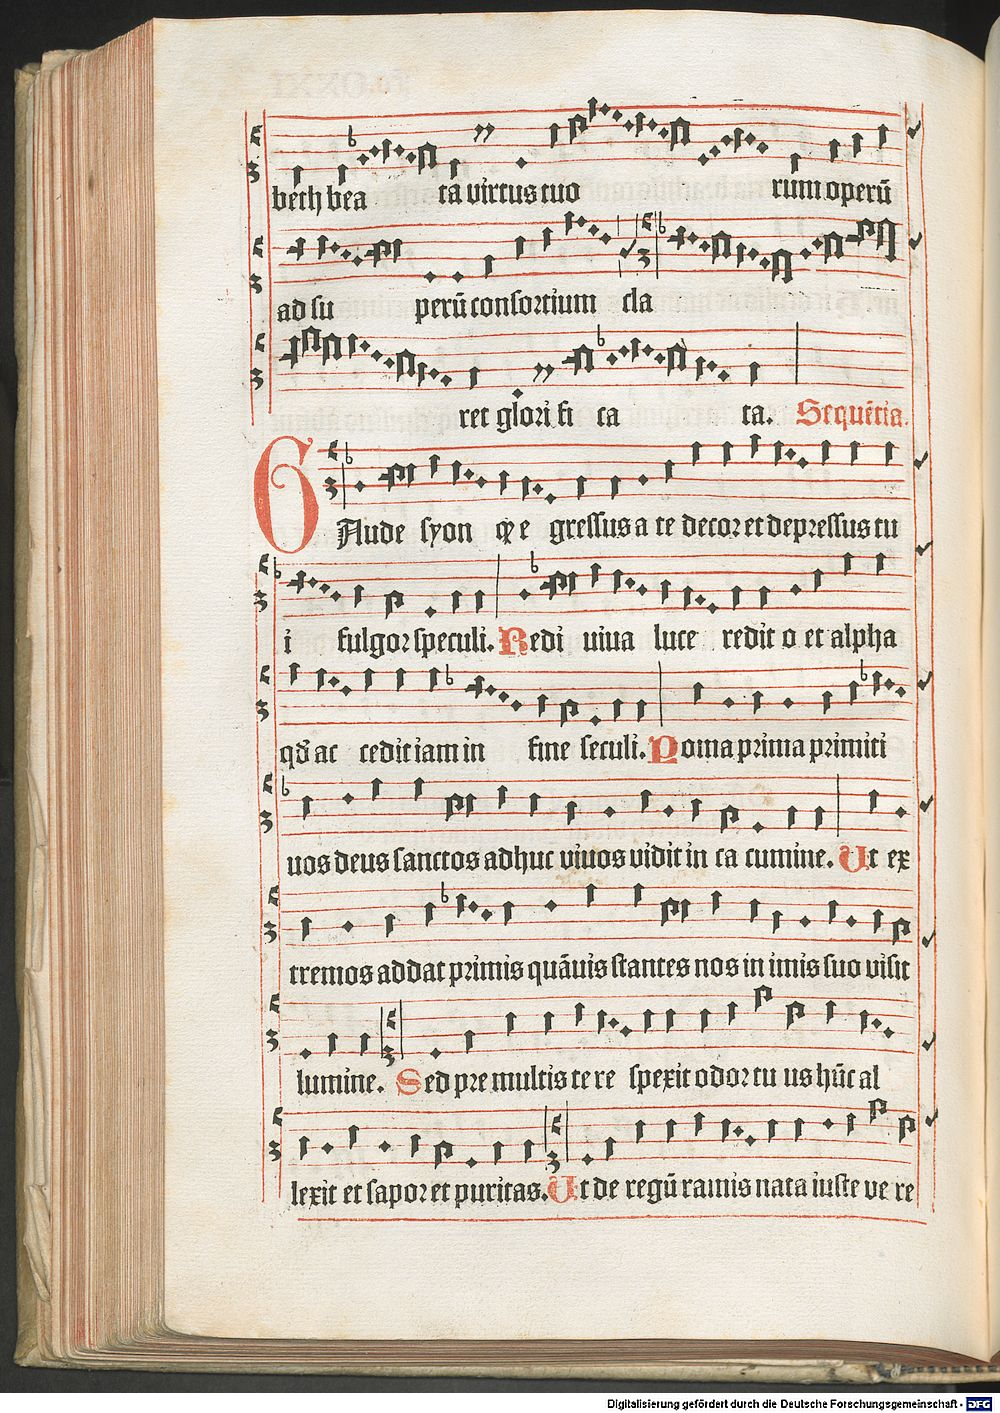 beth bea ta virtus tuo rum operū
ad su perū consortium cla
ret glori fi ca ta. Sequētia.
GAude syon qꝫ e gressus a te decor et depressus tu
i fulgor speculi. Redi viva luce redit o et alpha
qđ ac cedit iam in fine seculi. Poma prima primiti
uos deus sanctos adhuc viuos vidit in ca cumine. Ut ex
tremos addat primis quāuis stantes nos in imis suo visit
lumine. Sed pre multis te re spexit odor tu us hūc al
lexit et sapor et puritas. Ut de regū ramis nata iuste ve re
Digitalisierung gefördert durch die Deutsche Forschungsgemeinschaft - DFG